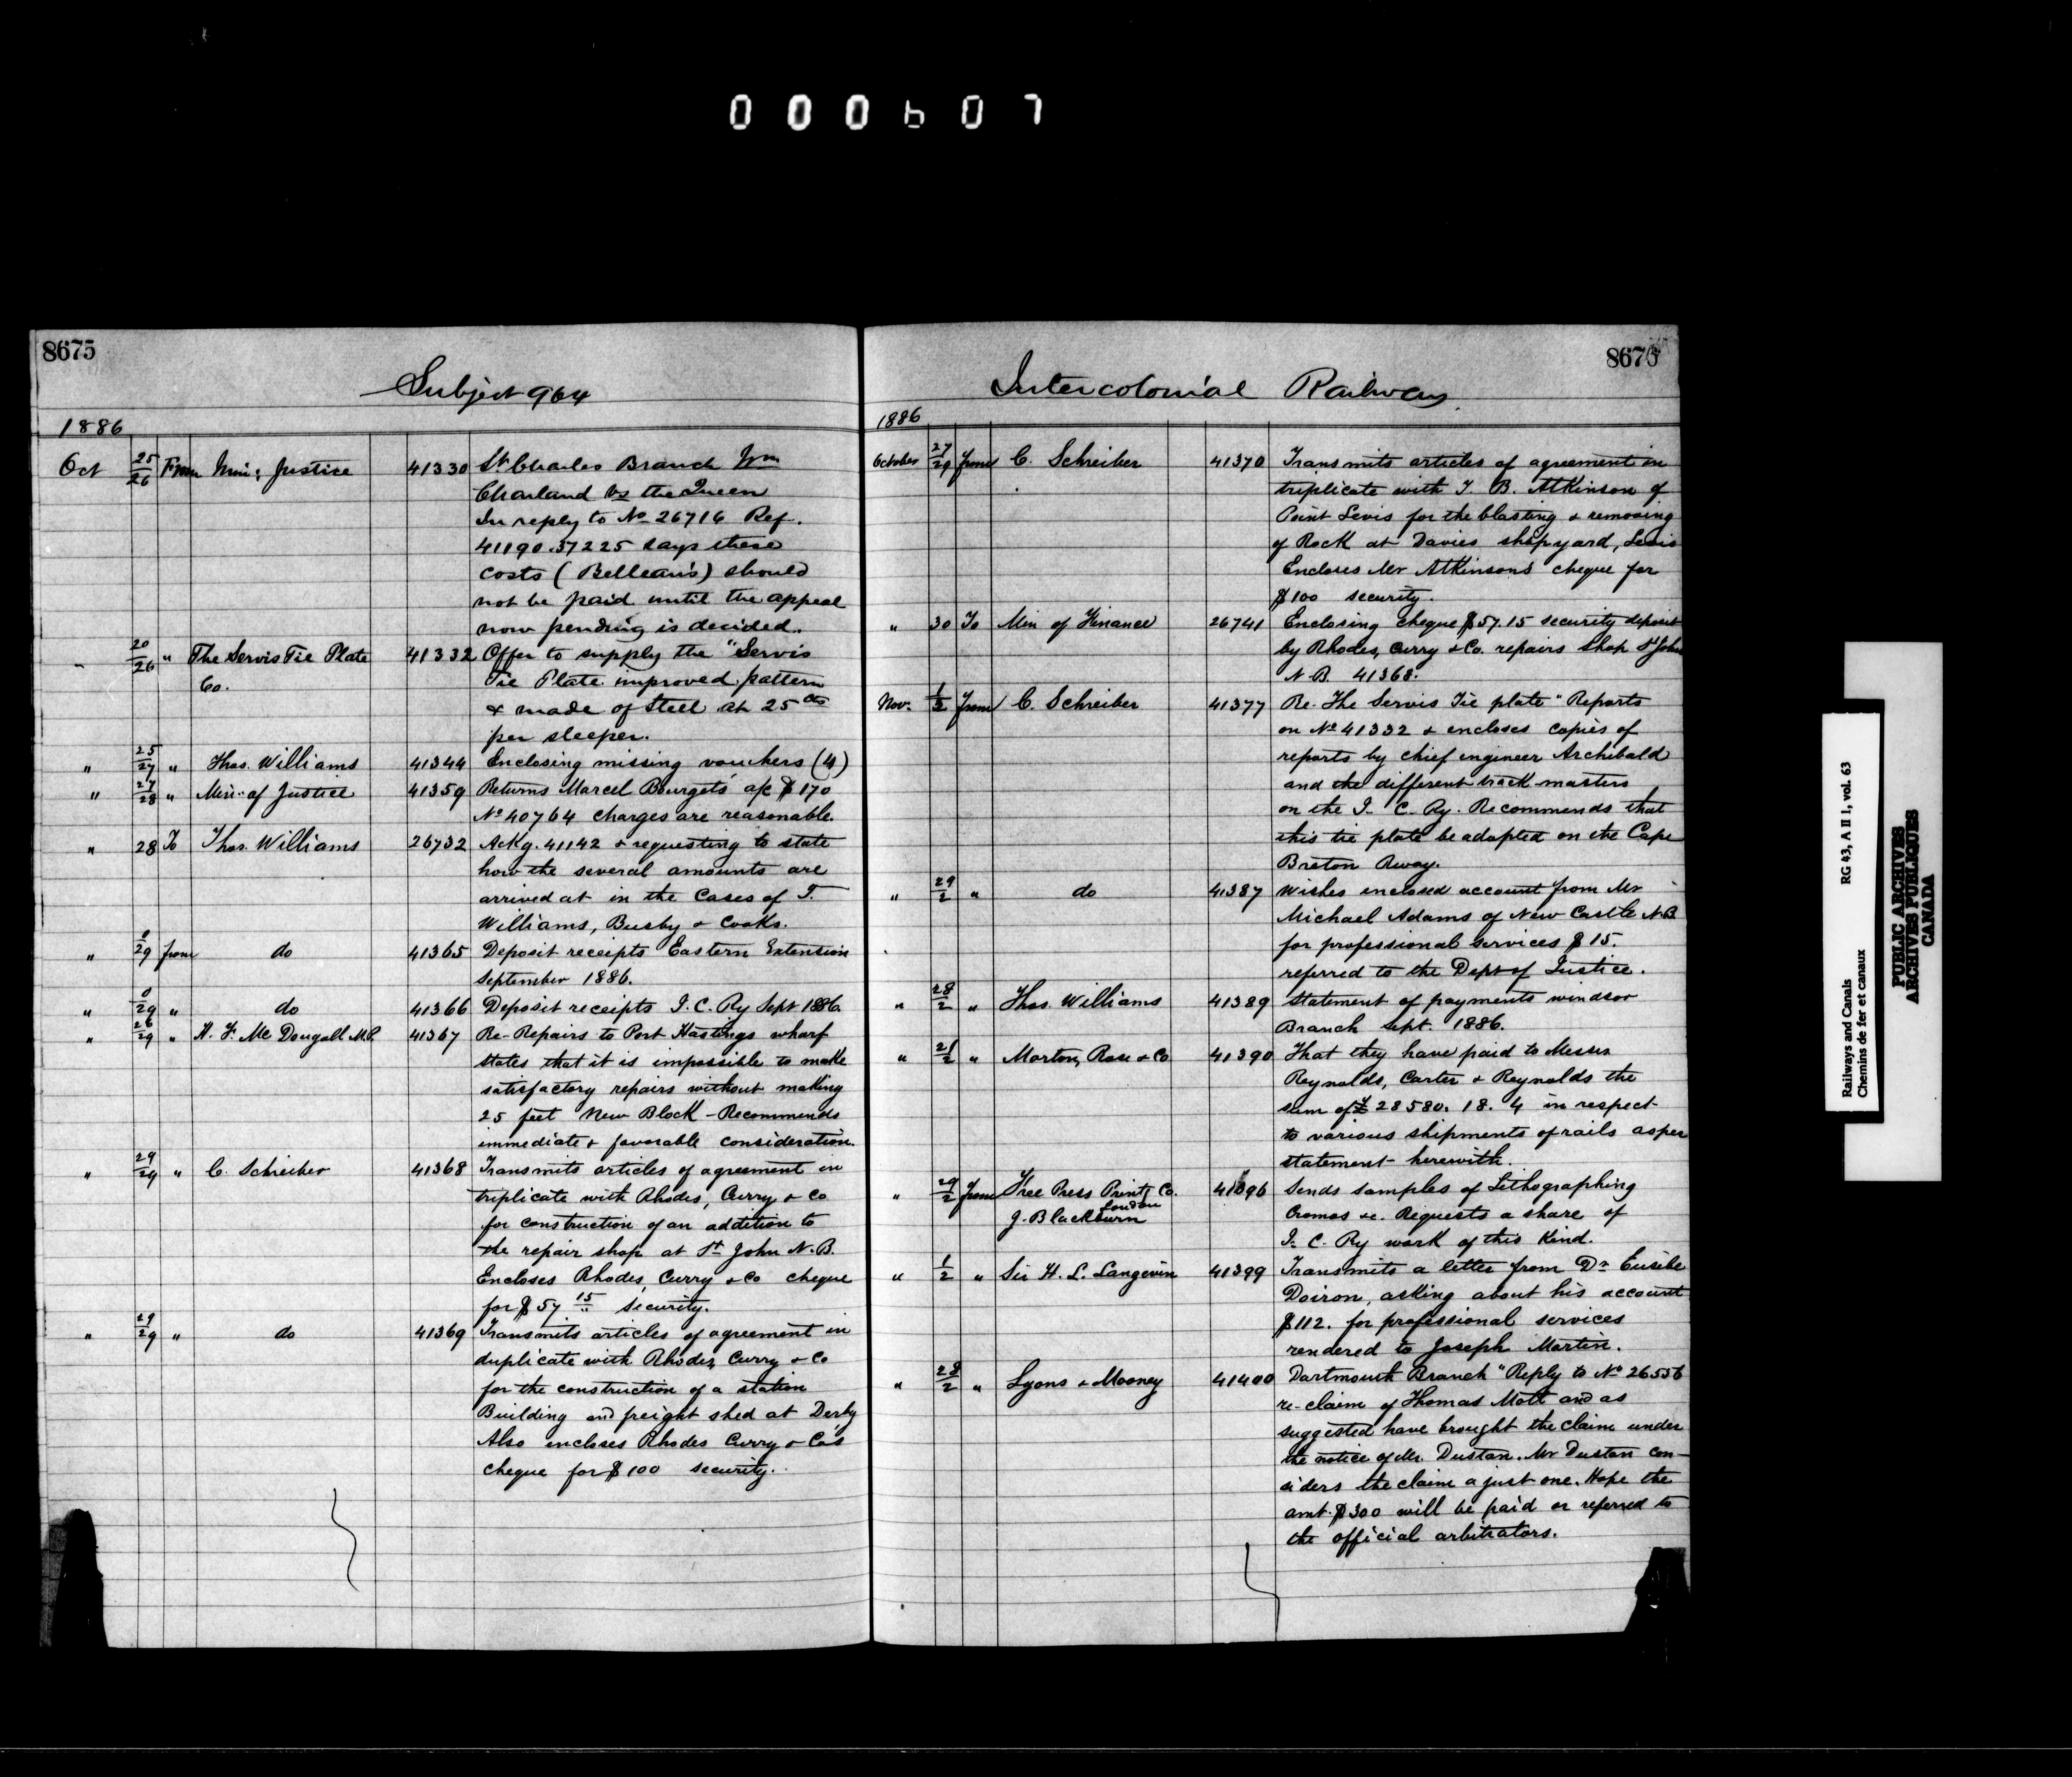 000607
8675
Subject 964
1886
Oct 25/26 From Min: Justice 41330 St Charles Branch Wm
Charland vs the Queen
In reply to No 26716 Ref.
41190.37225 says these
costs (Belleau's) should
not be paid until the appeal
now pending is decided.
" 20/26 " The Servis Tie Plate Co. 41332 Offer to supply the "Servis
Tie Plate improved pattern
& made of Steel at 25 cts
per sleeper.
" 25/27 " Thos. Williams 41344 Enclosing missing vouchers (4)
" 27/28 " Min: of Justice 41359 Returns Marcel Bourget's a/c $170
No 40764 charges are reasonable.
" 28 To Thos. Williams 26732 Ackg. 41142 & requesting to state
how the several amounts are
arrived at in the Cases of T.
Williams, Busby & Cooks.
" 0/29 from do 41365 Deposit receipts Eastern Extension
September 1886.
" 0/29 " do 41366 Deposit receipts I.C. Ry Sept 1886.
" 26/29 " H. F. Mc Dougall M.P. 41367 Re-Repairs to Port Hastings wharf
states that it is impossible to make
satisfactory repairs without making
25 feet New Block - Recommends
immediate & favorable consideration.
" 29/29 " C. Schreiber 41368 Transmits articles of agreement in
triplicate with Rhodes, Curry & Co
for construction of an addition to
the repair shop at St John N.B.
Encloses Rhodes, Curry & Co cheque
for $57 15 security.
" 29/29 " do 41369 Transmits articles of agreement in
duplicate with Rhodes, Curry & Co
for the construction of a station
Building and freight shed at Derby
Also encloses Rhodes Curry & Co's
cheque for $100 security.
8676
Intercolonial Railway
1886
October 27/29 from C. Schreiber 41370 Transmits articles of agreement in
triplicate with T. B. Atkinson of
Point Levis for the blasting & removing
of Rock at Davies shipyard, Levis
Encloses Mr Atkinson's cheque for
$100 security.
" 30 To Min of Finance 26741 Enclosing cheque $57.15 security deposit
by Rhodes, Curry & Co. repairs Shop St John
N.B. 41368.
Nov. 1/2 from C. Schreiber 41377 Re. The Servis Tie plate" Reports
on No 41332 & encloses copies of
reports by chief engineer Archibald
and the different track masters
on the I. C. Ry. Recommends that
this tie plate be adopted on the Cape
Breton Rway.
" 29/2 " do 41387 Wishes enclosed account from Mr
Michael Adams of New Castle N.B.
for professional services $15.
referred to the Dept of Justice.
" 28/2 " Thos. Williams 41389 Statement of payments windsor
Branch Sept. 1886.
" 21/2 " Morton, Rose & Co 41390 That they have paid to Messrs
Reynolds, Carter & Reynolds the
sum of £28580. 18. 4 in respect
to various shipments of rails as per
statement herewith.
" 29/2 from Free Press Printg Co. London 41396 Sends samples of Lithographing
J. Blackburn Cromos &c. Requests a share of
I. C. Ry work of this Kind.
" 1/2 " Sir H. L. Langevin 41399 Transmits a letter from Dr Eusibe
Doiron, asking about his account
$112. for professional services
rendered to Joseph Martin.
" 28/2 " Lyons & Mooney 41400 Dartmouth Branch "Reply to No 26556
re-claim of Thomas Mott and as
suggested have brought the claim under
the notice of Mr. Dustan. Mr Dustan con-
siders the claim a just one. Hope the
amt. $300 will be paid or referred to
the official arbitrators.
Railways and Canals RG 43, A II 1, vol. 63
Chemins de fer et canaux
PUBLIC ARCHIVES
ARCHIVES PUBLIQUES
CANADA